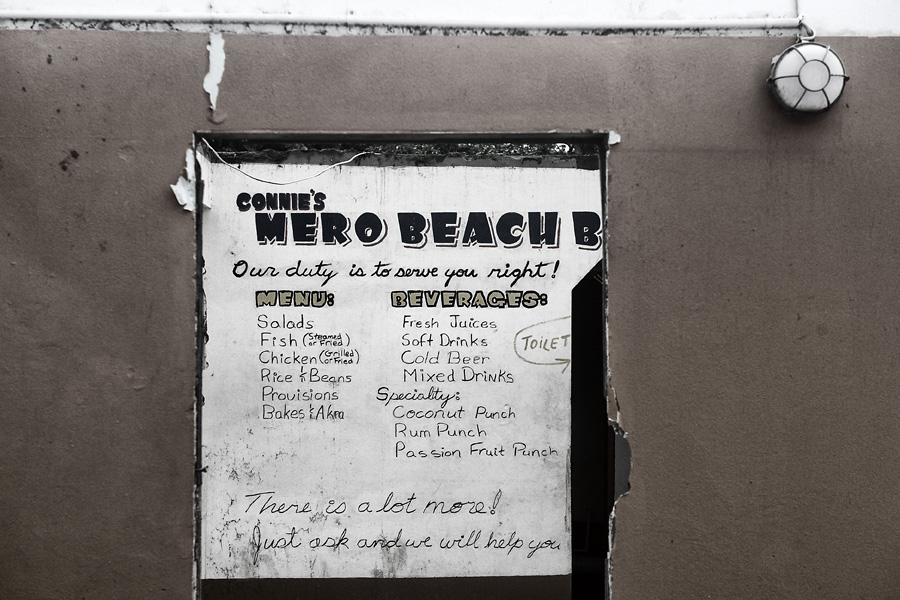 CONNIE'S
MERO BEACH B
Our duty is to serve you right!
MENU:
Salads
Fish (Steamed or Fried)
Chicken (Grilled or Fried)
Rice & Beans
Provisions
Bakes & Akra
BEVERAGES:
Fresh Juices
Soft Drinks
Cold Beer
Mixed Drinks
Specialty:
Coconut Punch
Rum Punch
Passion Fruit Punch
TOILET
There is a lot more!
Just ask and we will help you